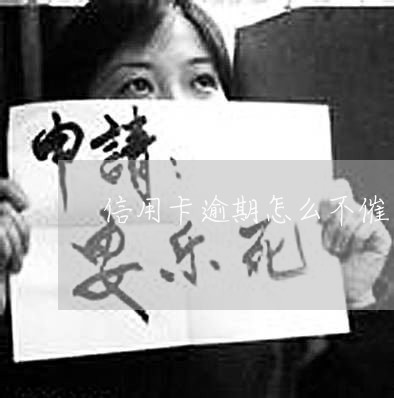 申請：
信用卡逾期怎么不催
安乐死